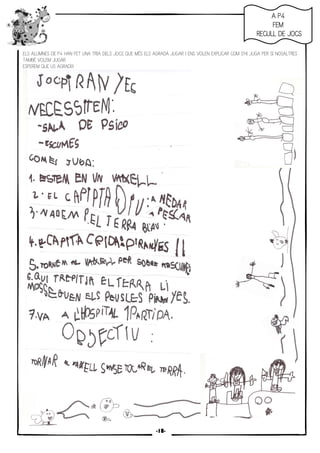 A P4
FEM
RECULL DE JOCS
ELS ALUMNES DE P4 HAN FET UNA TRIA DELS JOCS QUE MÉS ELS AGRADA JUGAR I ENS VOLEN EXPLICAR COM S'HI JUGA PER SI NOSALTRES
TAMBÉ VOLEM JUGAR.
ESPEREM QUE US AGRADI!
JOCPIRANYES
NECESSITEM:
-SALA DE PSICO
-ESCUMES
COM ES JUGA:
1. ESTEM EN UN VAIXELL
2. EL CAPITA DIU: A NEDAR
A PESCAR
3. NADEM PEL TERRA BLAU.
4. EL CAPITA CRIDA: PIRANYES !!
5. TORNEM AL VAIXELL PER SOBRE
6. QUI TREPITJA EL TERRA LI
MOSSEGUEN ELS PEUS LES PIRANYES.
7. VA A L'HOSPITAL 1 PARTIDA.
OBJECTIU :
TORNAR AL VAIXELL SENSE TOCAR EL TERRA.
-18-